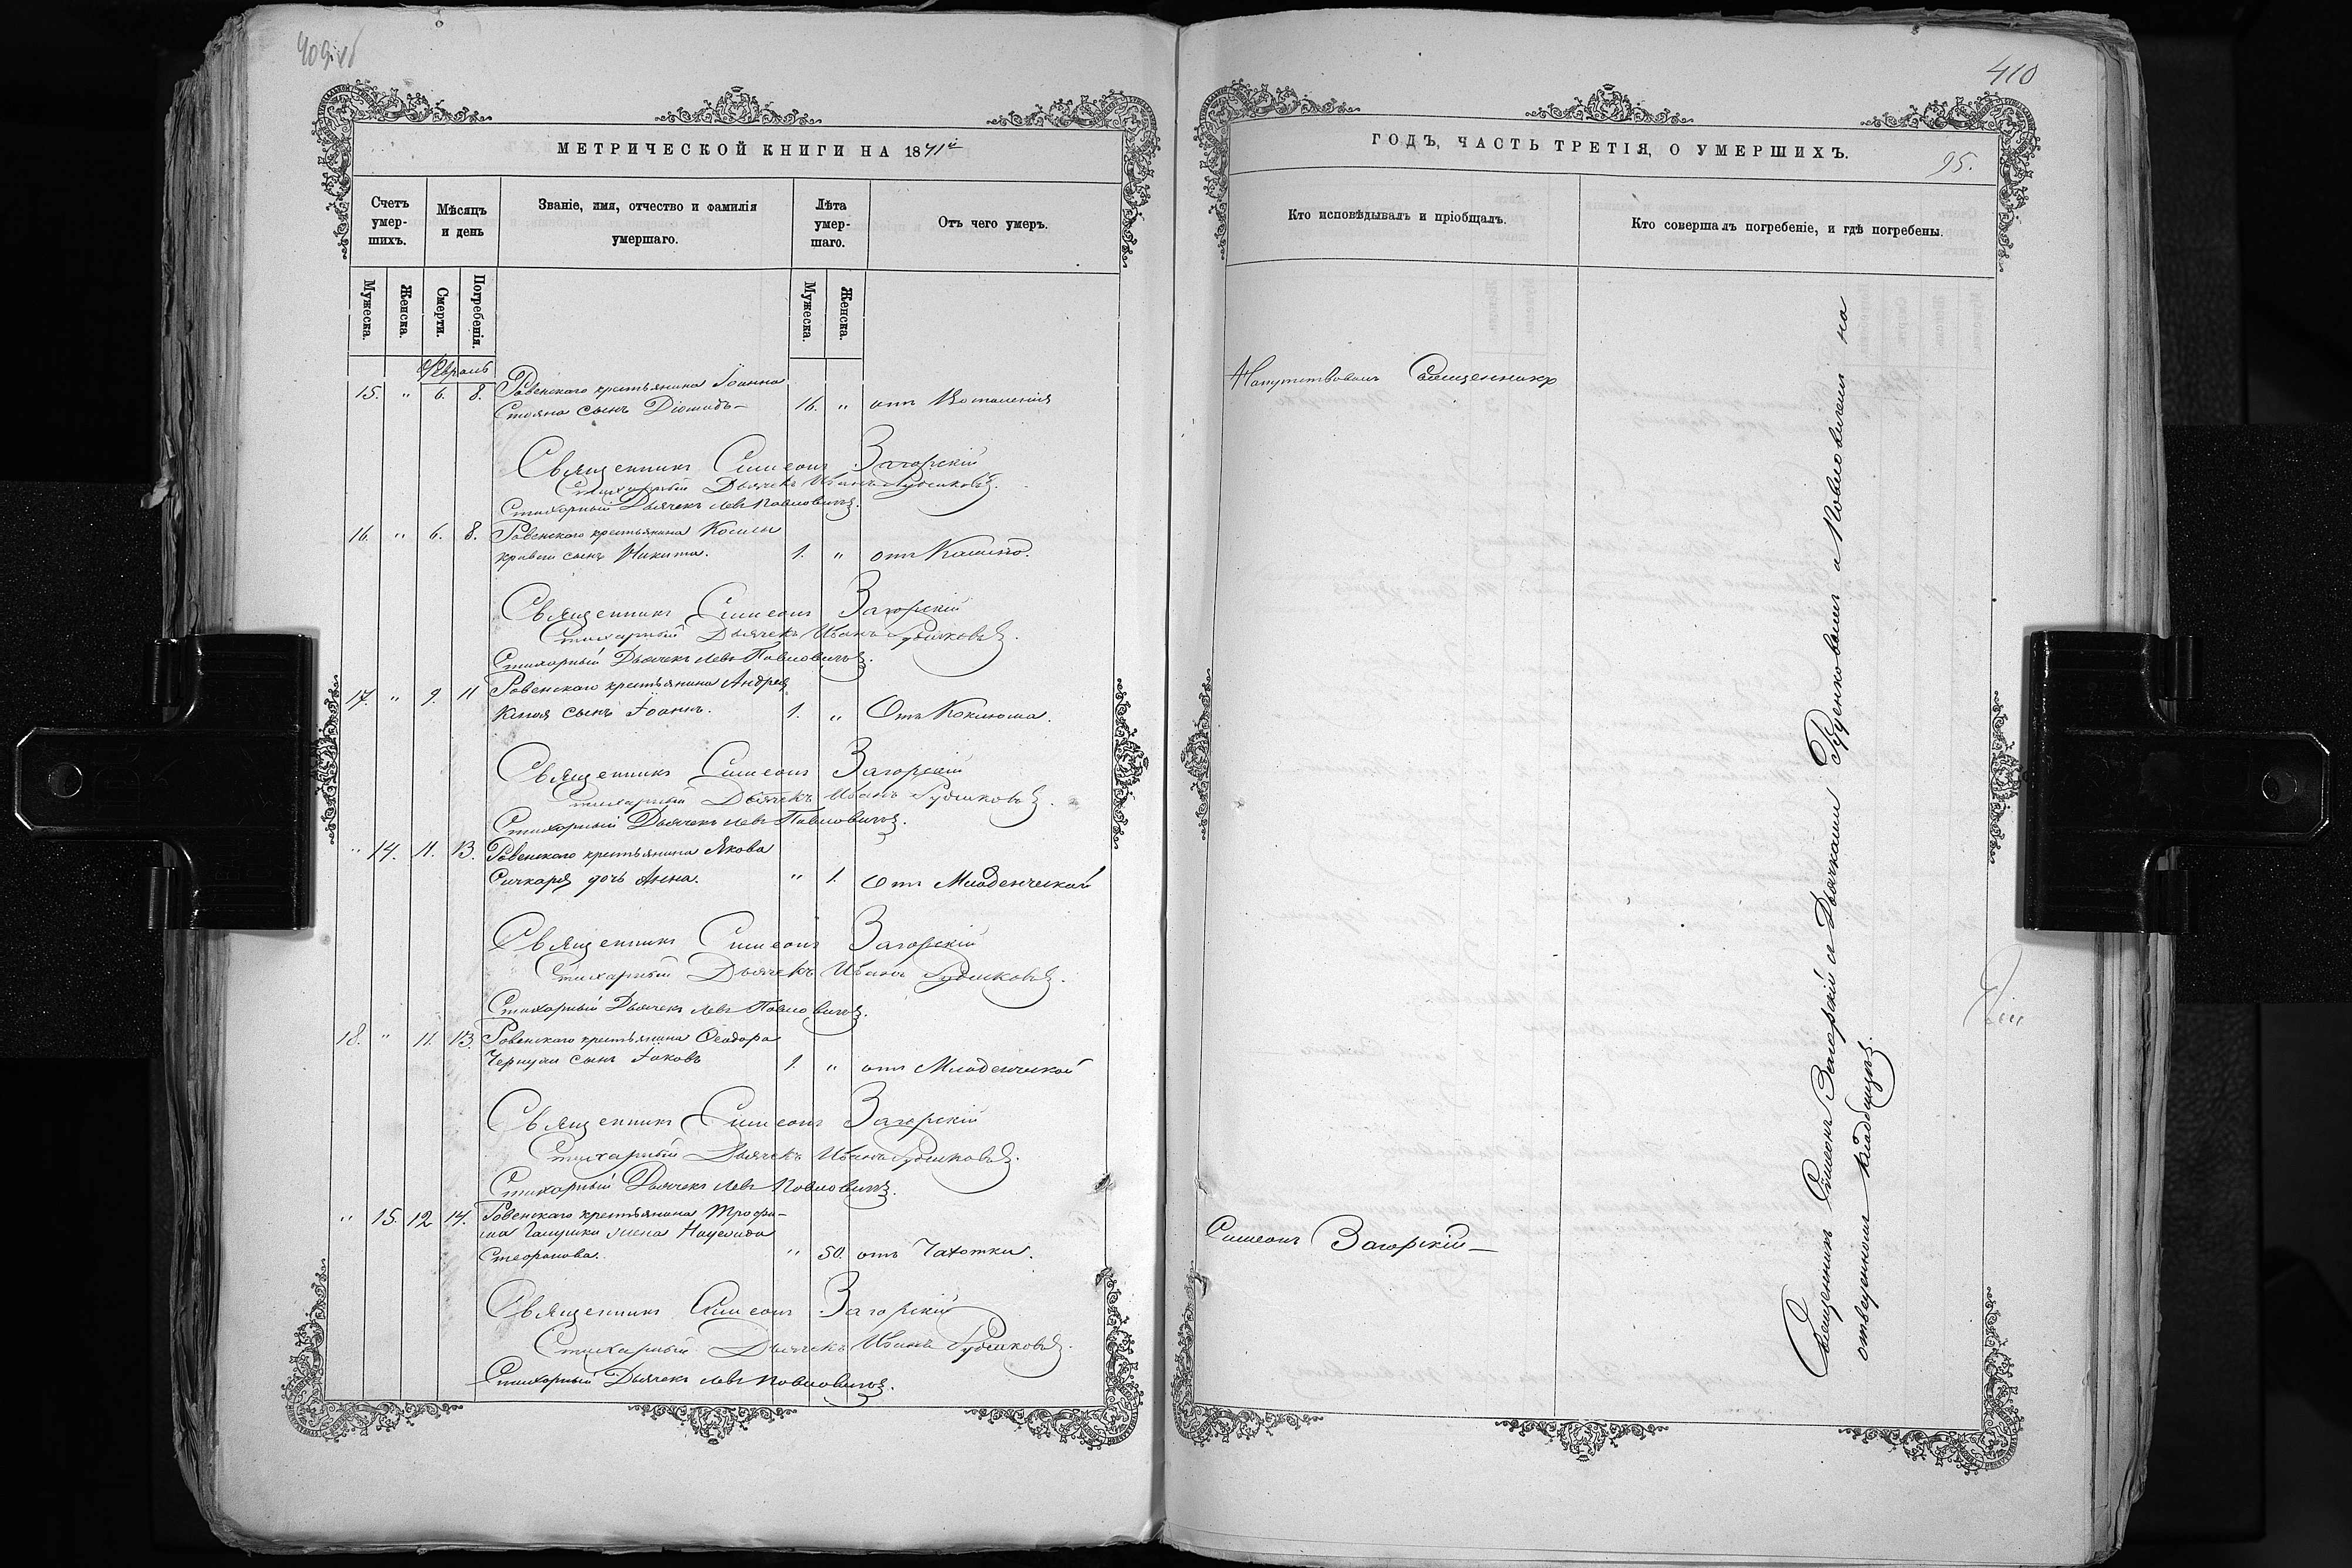 409 об
МЕТРИЧЕСКОЙ КНИГИ НА 1871й
Счетъ умер-шихъ.
Мѣсяцъ и день
Званіе, имя, отчество и фамилія умершаго.
Лѣта умер-шаго.
Отъ чего умеръ.
Мужеска.
Женска.
Смерти.
Погребенія.
Мужеска.
Женска.
Февраль
15. " 6. 8. Ровенскаго крестьянина Іоанна
Стояна сынъ Діомидъ 16. " отъ
Священникъ Симеонъ Загорскій
Стихарный Дьячекъ Иванъ
Стихарный Дьячекъ Левъ Павловичъ.
16. " 6. 8. Ровенскаго крестьянина Космы
сынъ Никита. 1. " отъ Кашлю.
Священникъ Симеонъ Загорскій
Стихарный Дьячекъ Иванъ
Стихарный Дьячекъ Левъ Павловичъ.
17. " 9. 11 Ровенскаго крестьянина Андрея
сынъ Іоаннъ. 1. " Отъ Коклюша.
Священникъ Симеонъ Загорскій
Стихарный Дьячекъ Иванъ
Стихарный Дьячекъ Левъ Павловичъ.
" 14. 11. 13. Ровенскаго крестьянина Якова
Сичкаря дочь Анна. " 1. Отъ Младенческой
Священникъ Симеонъ Загорскій
Стихарный Дьячекъ Иванъ
Стихарный Дьячекъ Левъ Павловичъ.
18. " 11. 13. Ровенскаго крестьянина Ѳеодора
сынъ Іаковъ 1. " отъ Младенческой
Священникъ Симеонъ Загорскій
Стихарный Дьячекъ Иванъ
Стихарный Дьячекъ Левъ Павловичъ.
" 15. 12 14. Ровенскаго крестьянина Трофи-
ма Галушки жена
Стефанова. " 50. отъ Чахотки.
Священникъ Симеонъ Загорскій
Стихарный Дьячекъ Иванъ
Стихарный Дьячекъ Левъ Павловичъ.
410
ГОДЪ, ЧАСТЬ ТРЕТІЯ, О УМЕРШИХЪ.
95.
Кто исповѣдывалъ и пріобщалъ.
Кто совершалъ погребеніе, и гдѣ погребены.
Напутствовалъ Священникъ
Симеонъ Загорскій
Священникъ Симеонъ Загорскій съ Дьячками и Павловичемъ на
отведенномъ кладбищѣ.